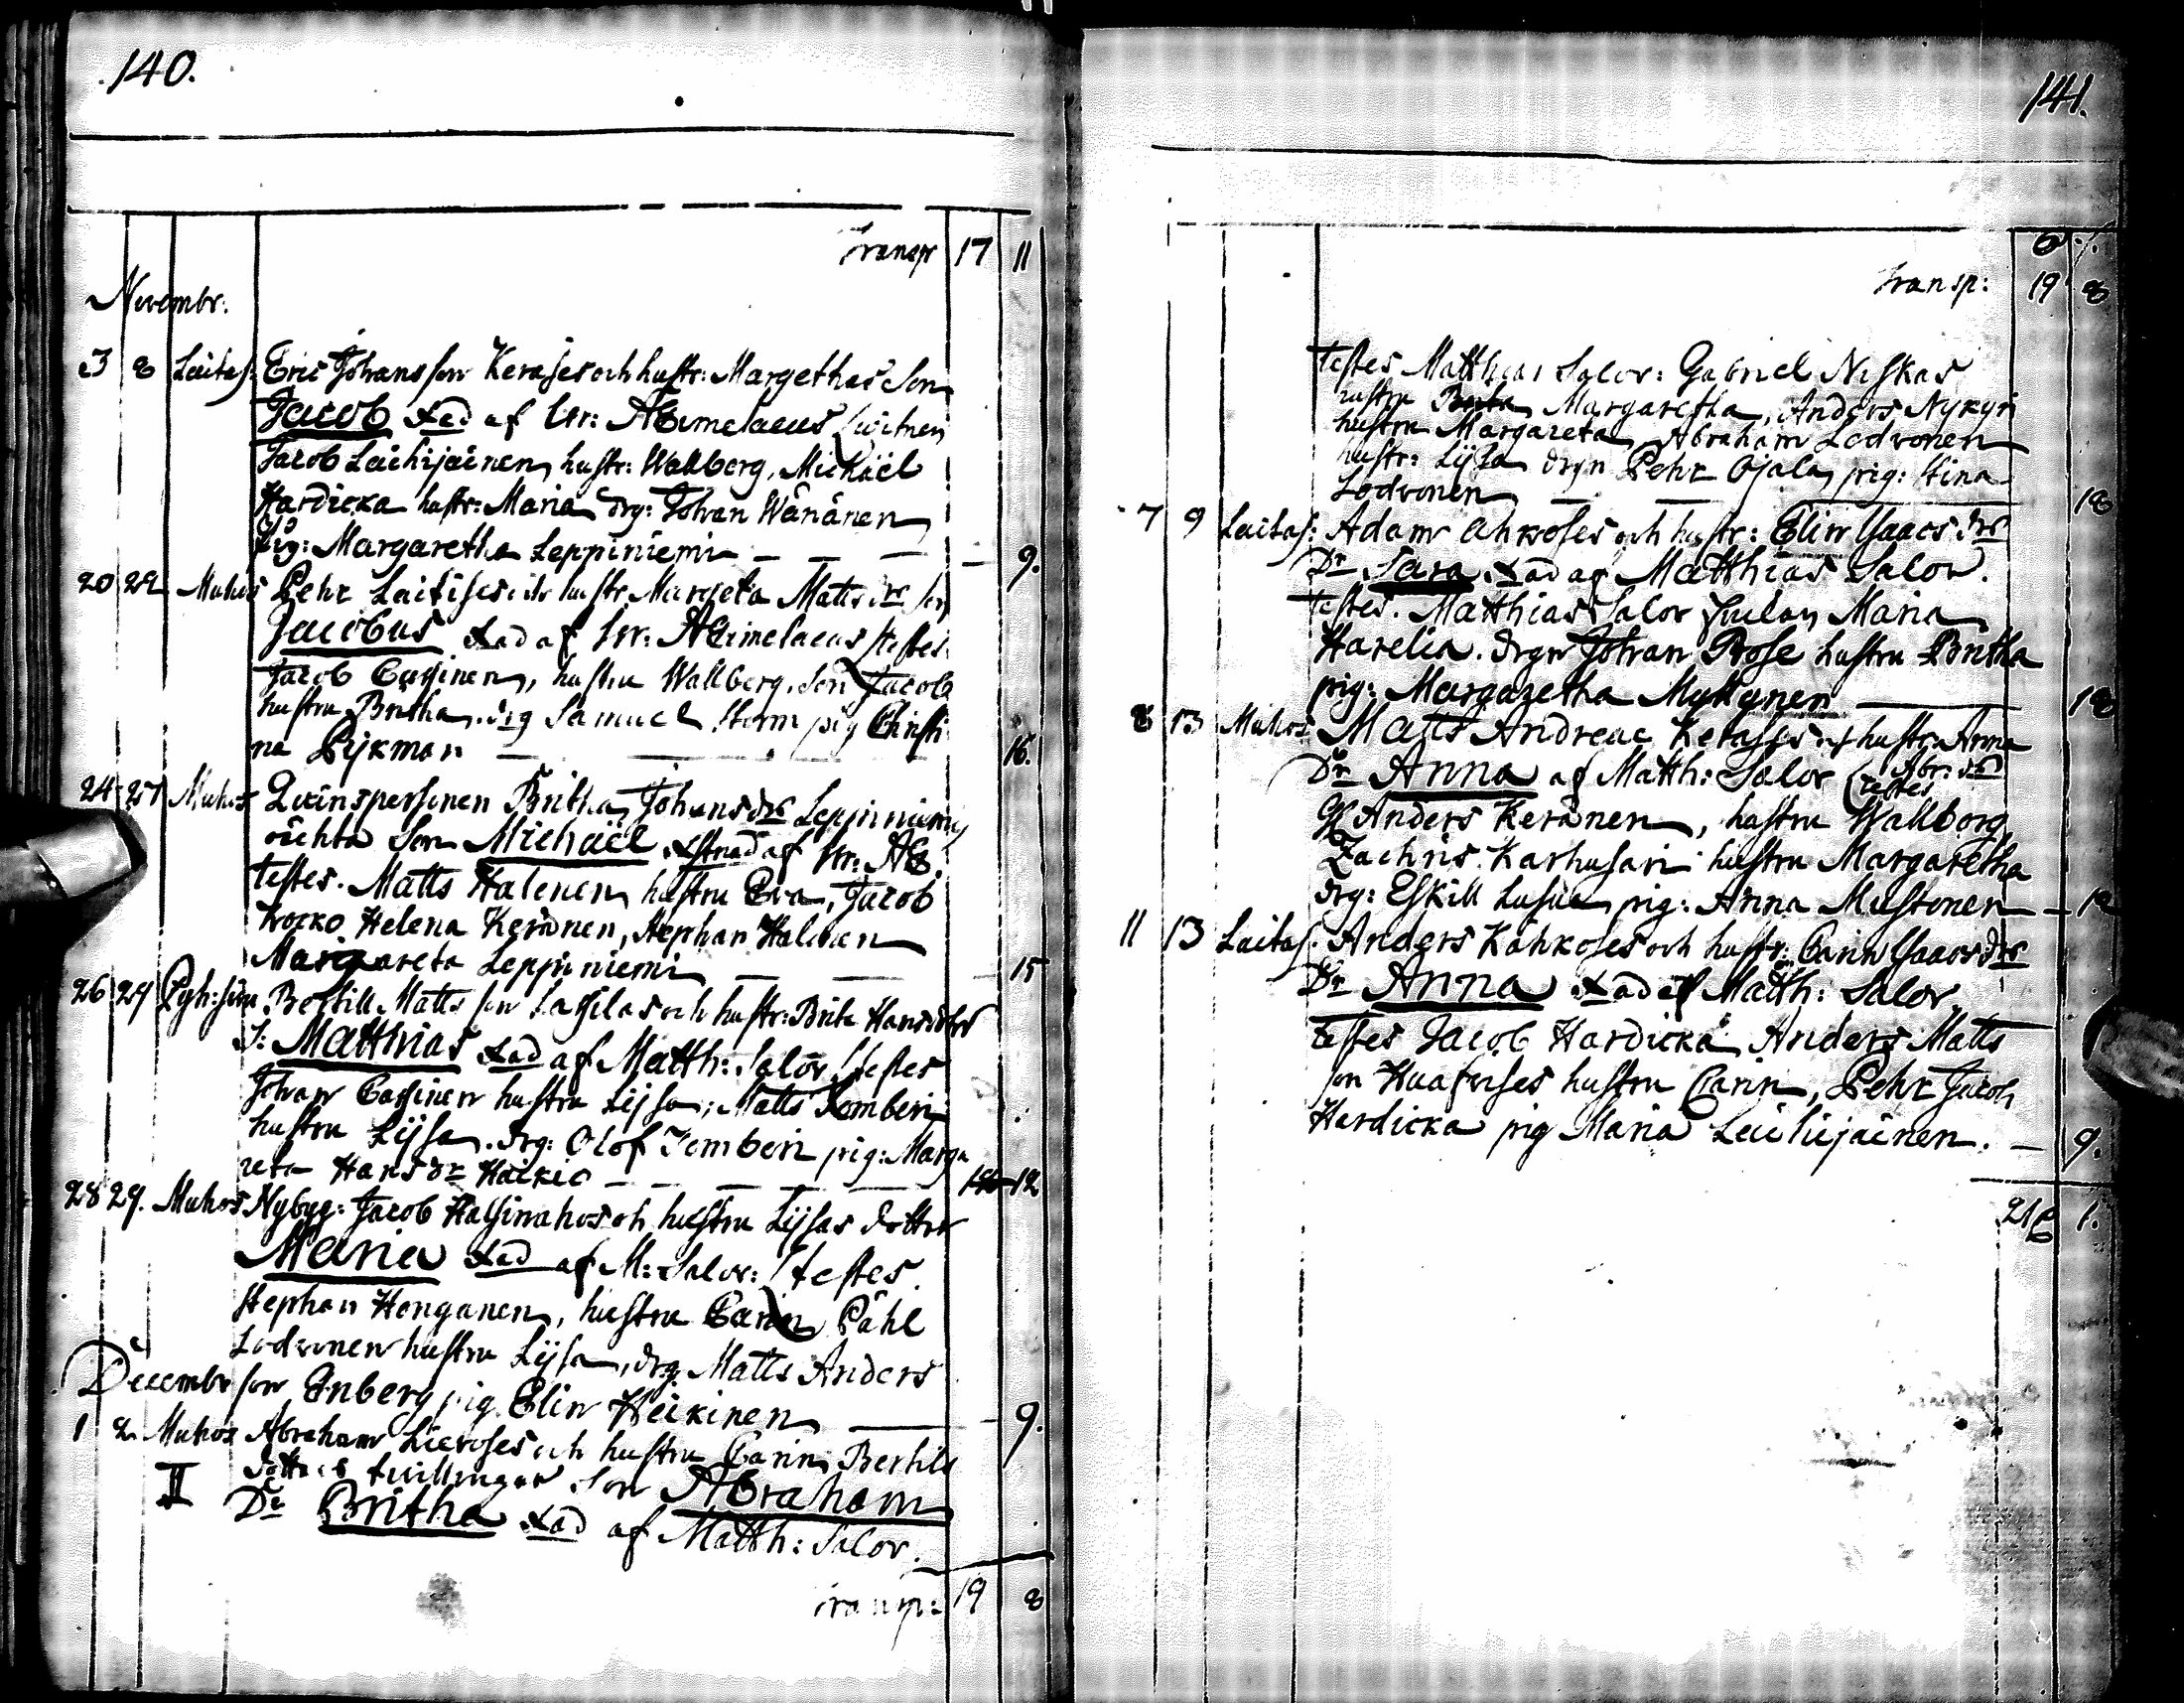 140.
Transp 17 11
Novembr:
3 8 Laitas: Eric Johansson Keräses och hustr: Margethas Son
Jacob Xad af hr: Abimelaeus (witnen
Jacob Leihijäinen, hustr: Wallborg, Michäel
Hardicka hustr: Maria drg: Johan Wänänen
pig: Margaretha Leppiniemi — — — 9.
20 22 Muhos Pehr Laitises och hustr Margeta Matts dr son
Jacobus Xad af hr: Abimelaeus (testes
Jacob Cassinen, hustru Wallborg, Son Jacob
hustru Britha, drg Samuel Storm pig Christi
na Pijkman — — 16.
24 27 Muhos Qwinspersonen Britha Johansdr Leppiniemis
oächta Son Michäel Xstnad af hr: Ab.
testes. Matts Halenen, hustru Eva, Jacob
Kocko Helena Keränen, Stephan Halenen
Margareta Leppiniemi — — 15
26 29 Pyh: Bertill Mattsson Lassilas och hustr: Brita Hansdotrs
S: Matthias Xad af Matth: Salov (testes
Johan Cassinen hustru Lijsa; Matts Tomberi
hustru Lijsa. drg: Olof Tomberi pig: Marga
reta Hansdr Haikio — — — 12
28 29. Muhos Nybyg: Jacob Hassinahos och hustru Lijsas dotter
Maria Xad af M: Salov: (testes
Stephan Honganen, hustru Carin Påhl
Lodvonen hustru Lijsa, drg. Matts Anders
Decembr son Enberg pig Elin Heikinen — 9.
1 2 Muhos Abraham Lieroses och hustru Carin Bertils
dotters twillingar Son Abraham
II Dr Britha Xad af Matth: Salov.
Transp: 19 8
141.
Transp: 19 8
testes Matthias Salov: Gabriel Niskas
hustru Margaretha, Anders Nykyri
hustru Margareta, Abraham Lodvonen
hustr: Lijsa drgn Pehr Ojala, pig: Stina
Lodvonen — — 18
7 9 Laitas: Adam Ahkoses och hustr: Elin Isaacs drs
Dr Sara Xad af Matthias Salov.
testes. Matthias Salov frulan Maria
Harelia. drgn Johan Rose hustru Britha
pig: Margaretha Myllynen — 18
8 13 Muhos Matts Andreae Kerases och hustr Anna
Abr: drs
Dr Anna af Matth: Salov (testes
Anders Keränen, hustru Wallborg,
Zachris Karhusari hustru Margaretha
drg: Eskill Lusua, pig: Anna Mustonen — 12
11 13 Laitas: Anders Kähkoses och hustr: Carin Isaacsdrs
Dr Anna Xad af Matth: Salov.
testes Jacob Hardicka Anders Matts
son Huafwises hustru Carin, Pehr Jacob
Hardicka pig Maria Leihijäinen. — 9.
21 1.